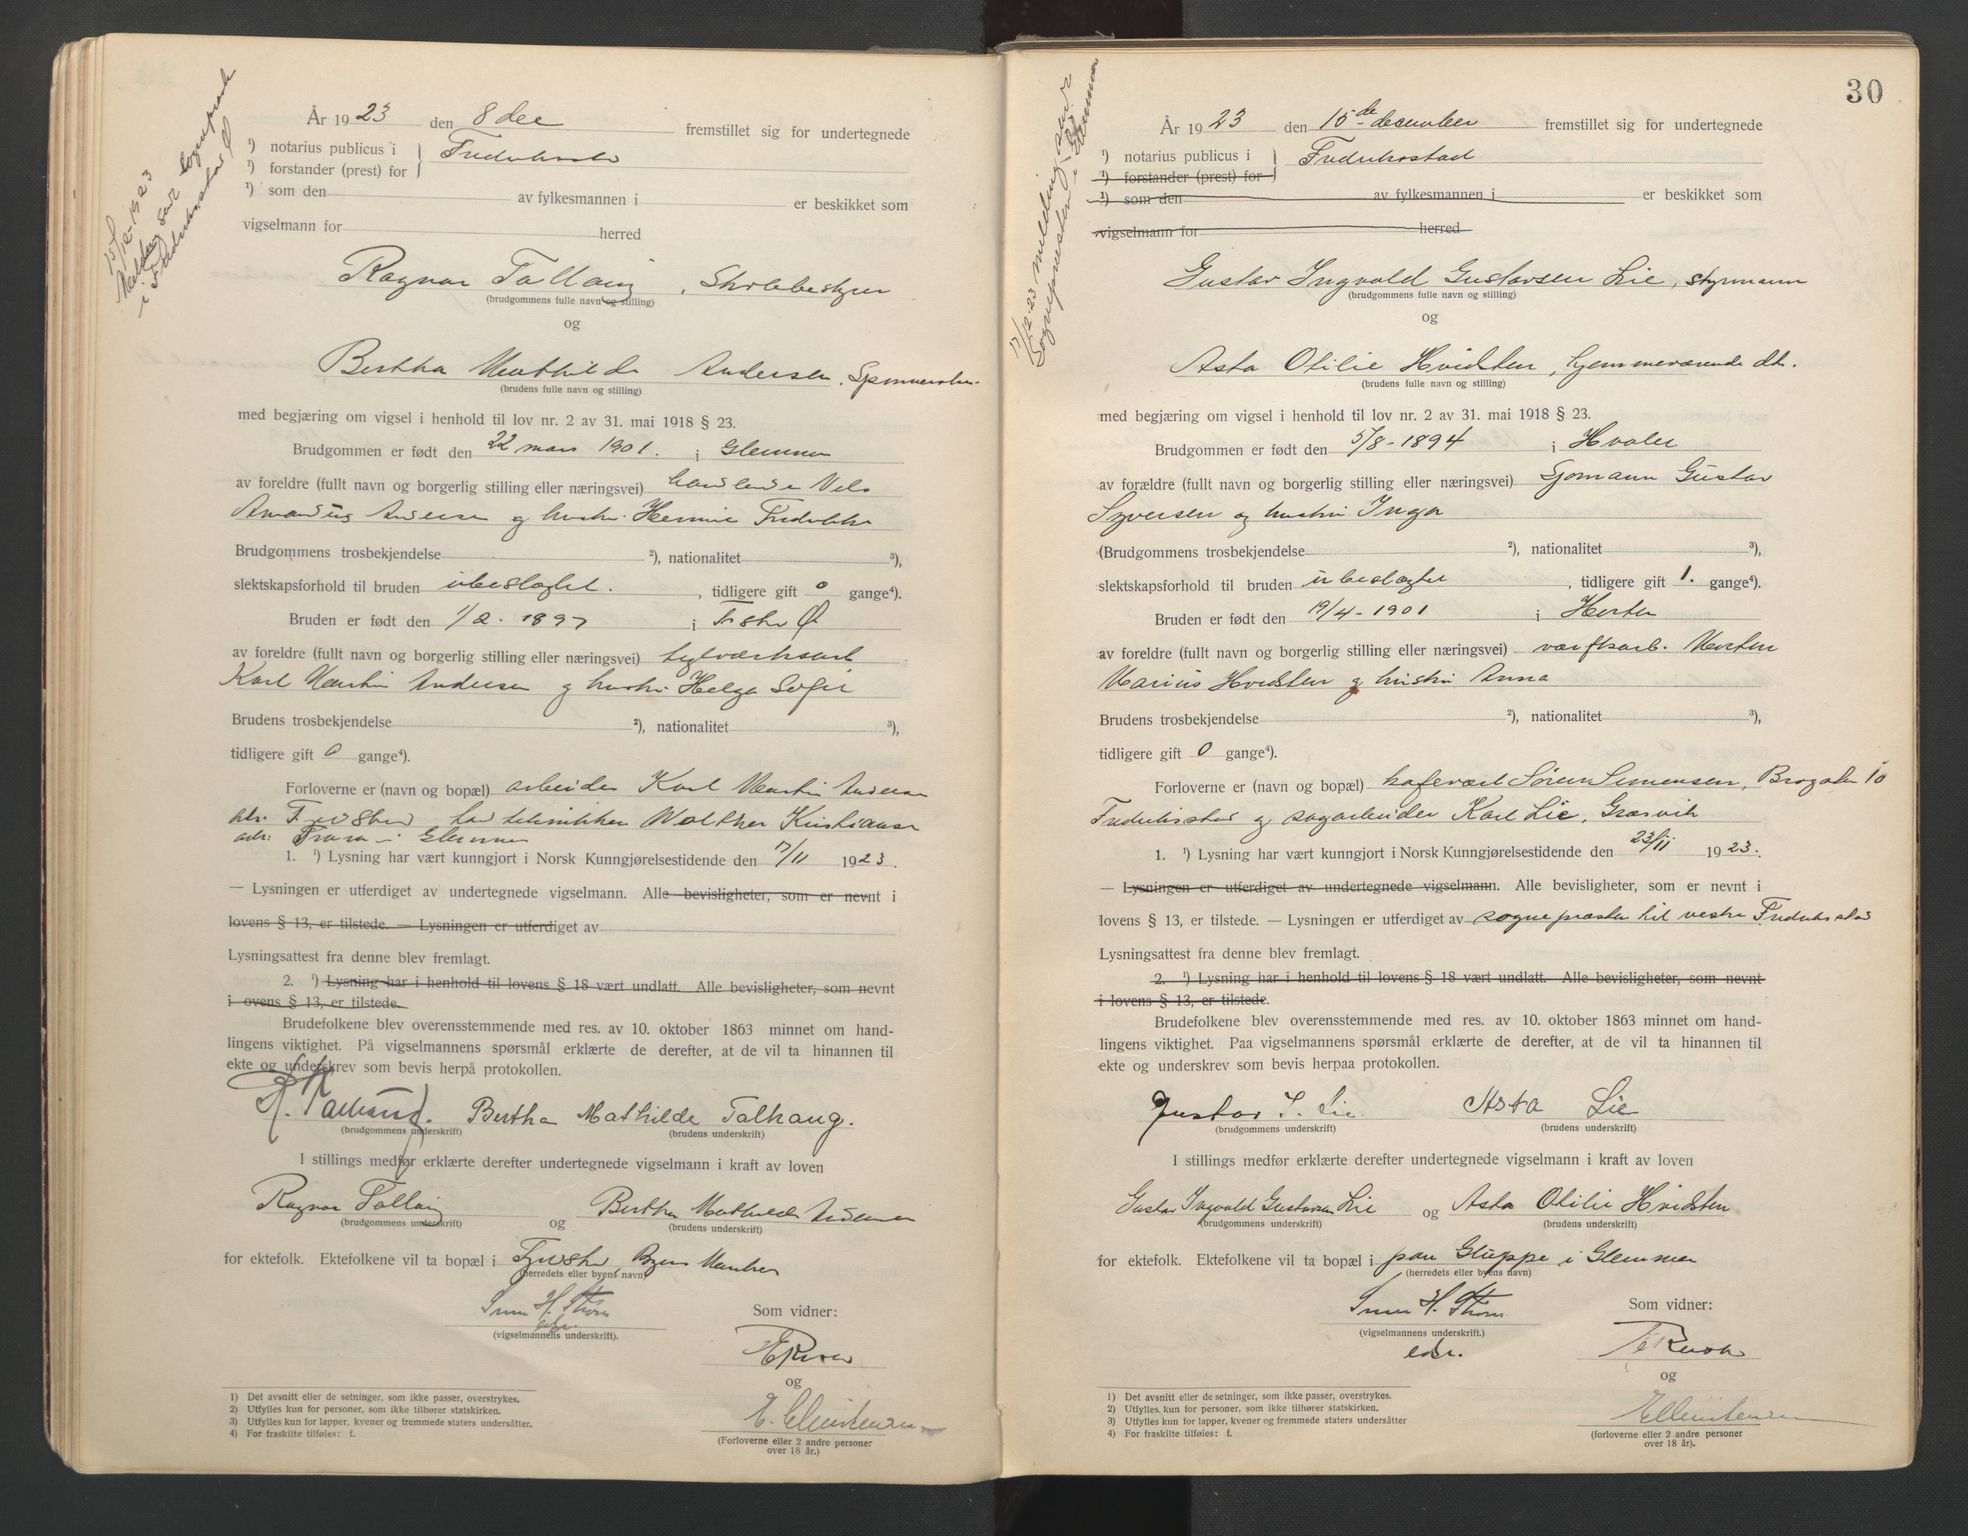 15/12-1923
Melding sendt sogneprest
i Fredrikstad Ø
År 1923 den 8 dec fremstillet sig for undertegnede
¹) notarius publicus i } Fredrikstad
¹) forstander (prest) for
¹) som den av fylkesmannen i er beskikket som
vigselmann for herred
Ragnar Talhaug, Skolebestyrer
(brudgommens fulle navn og stilling)
og
Bertha Mathilde Andersen,
(brudens fulle navn og stilling)
med begjæring om vigsel i henhold til lov nr. 2 av 31. mai 1918 § 23.
Brudgommen er født den 22 mars 1901. i Glemmen
av foreldre (fullt navn og borgerlig stilling eller næringsvei) handlende Nels
Amandus Andersen og hustru Hermine Fredrikke
Brudgommens trosbekjendelse ²), nationalitet ³),
slektskapsforhold til bruden ubeslægtet. , tidligere gift 0 gange⁴).
Bruden er født den 1/2-1897 i Ø
av foreldre (fullt navn og borgerlig stilling eller næringsvei) teglværksarb.
Karl Martin Andersen og hustru Helga Sofie
Brudens trosbekjendelse ²), nationalitet ³),
tidligere gift 0 gange⁴).
Forloverne er (navn og bopæl) arbeider Karl Martin Andersen
adr. Walther Kristiansen
adr: Trara i Glemmen
1. ¹) Lysning har vært kunngjort i Norsk Kunngjørelsestidende den 17/11 1923.
— Lysningen er utferdiget av undertegnede vigselmann. Alle bevisligheter, som er nevnt i
lovens § 13, er tilstede. — Lysningen er utferdiget av
Lysningsattest fra denne blev fremlagt.
2. ¹) Lysning har i henhold til lovens § 18 vært undlatt. Alle bevisligheter, som nevnt
i ovens § 13, er tilstede.
Brudefolkene blev overensstemmende med res. av 10. oktober 1863 minnet om hand-
lingens viktighet. På vigselmannens spørsmål erklærte de derefter, at de vil ta hinannen til
ekte og underskrev som bevis herpå protokollen.
R. Talhaug. Bertha Mathilde Talhaug.
(brudgommens underskrift) (brudens underskrift)
I stillings medfør erklærte derefter undertegnede vigselmann i kraft av loven
Ragnar Talhaug og Bertha Mathilde Andersen
(brudgommens underskrift) (brudens underskrift)
for ektefolk. Ektefolkene vil ta bopæl i
(herredets eller byens navn)
H. Thorn
(vigselmannens underskrift). Som vidner:
og
E. Christensen
(Forloverne eller 2 andre personer
over 18 år.)
1) Det avsnitt eller de setninger, som ikke passer, overstrykes.
2) Utfylles kun for personer, som ikke tilhører statskirken.
3) Utfylles kun for lapper, kvener og fremmede staters undersåtter.
4) For fraskilte tilføies: f.
30
17/12-23 melding sendt
Sognepresten i Glemmen
År 1923 den 15de december fremstillet sig for undertegnede
¹) notarius publicus i } Fredrikstad
¹) forstander (prest) for
¹) som den av fylkesmannen i er beskikket som
vigselmann for herred
Gustav Ingvald Gustavsen Lie, styrmann
(brudgommens fulle navn og stilling)
og
Asta Otilie Hvidsten, hjemmeværende dtr.
(brudens fulle navn og stilling)
med begjæring om vigsel i henhold til lov nr. 2 av 31. mai 1918 § 23.
Brudgommen er født den 5/8-1894 i Hvaler
av forældre (fullt navn og borgerlig stilling eller næringsvei) Sjømann Gustav
Syversen og hustru Inga
(Brudgommens trosbekjendelse ²), nationalitet ³),
slektskapsforhold til bruden ubeslægtet , tidligere gift 1. gange⁴).
Bruden er født den 19/4-1901 i Horten
av foreldre (fullt navn og borgerlig stilling eller næringsvei) værftsarb. Morten
Marius Hvidsten og hustru Anna
Brudens trosbekjendelse ²), nationalitet ³),
tidligere gift 0 gange⁴).
Forloverne er (navn og bopæl) kafevært Søren Simensen, Brogaten 10
Fredrikstad og sagarbeider Karl Lie, Græsvik
1. ¹) Lysning har vært kunngjort i Norsk Kunngjørelsestidende den 23/11 1923.
— Lysningen er utferdiget av undertegnede vigselmann. Alle bevisligheter, som er nevnt i
lovens § 13, er tilstede. — Lysningen er utferdiget av sognepresten til vestre Fredrikstad
Lysningsattest fra denne blev fremlagt.
2. ¹) Lysning har i henhold til lovens § 18 vært undlatt. Alle bevisligheter, som nevnt
i lovens § 13, er tilstede.
Brudefolkene blev overensstemmende med res. av 10. oktober 1863 minnet om hand-
lingens viktighet. Paa vigselmannens spørsmål erklærte de derefter, at de vil ta hinannen til
ekte og underskrev som bevis herpaa protokollen.
Gustav I. Lie. Asta Lie
(brudgommens underskrift) (brudens underskrift)
I stillings medfør erklærte derefter undertegnede vigselmann i kraft av loven
Gustav Ingvald Gustavsen Lie og Asta Otilie Hvidsten
(brudgommens underskrift) (brudens underskrift)
for ektefolk. Ektefolkene vil ta bopæl i paa Gluppe i Glemmen
(herredets eller byens navn)
H. Thorn
(vigselmannens underskrift.) Som vidner:
og
E Christensen
(forloverne eller 2 andre personer
over 18 år).
1) Det avsnitt eller de setninger, som ikke passer, overstrykes.
2) Utfylles kun for personer, som ikke tilhører statskirken.
3) Utfylles kun for lapper, kvener og fremmede staters undersåtter
4) For fraskilte tilføies: f.